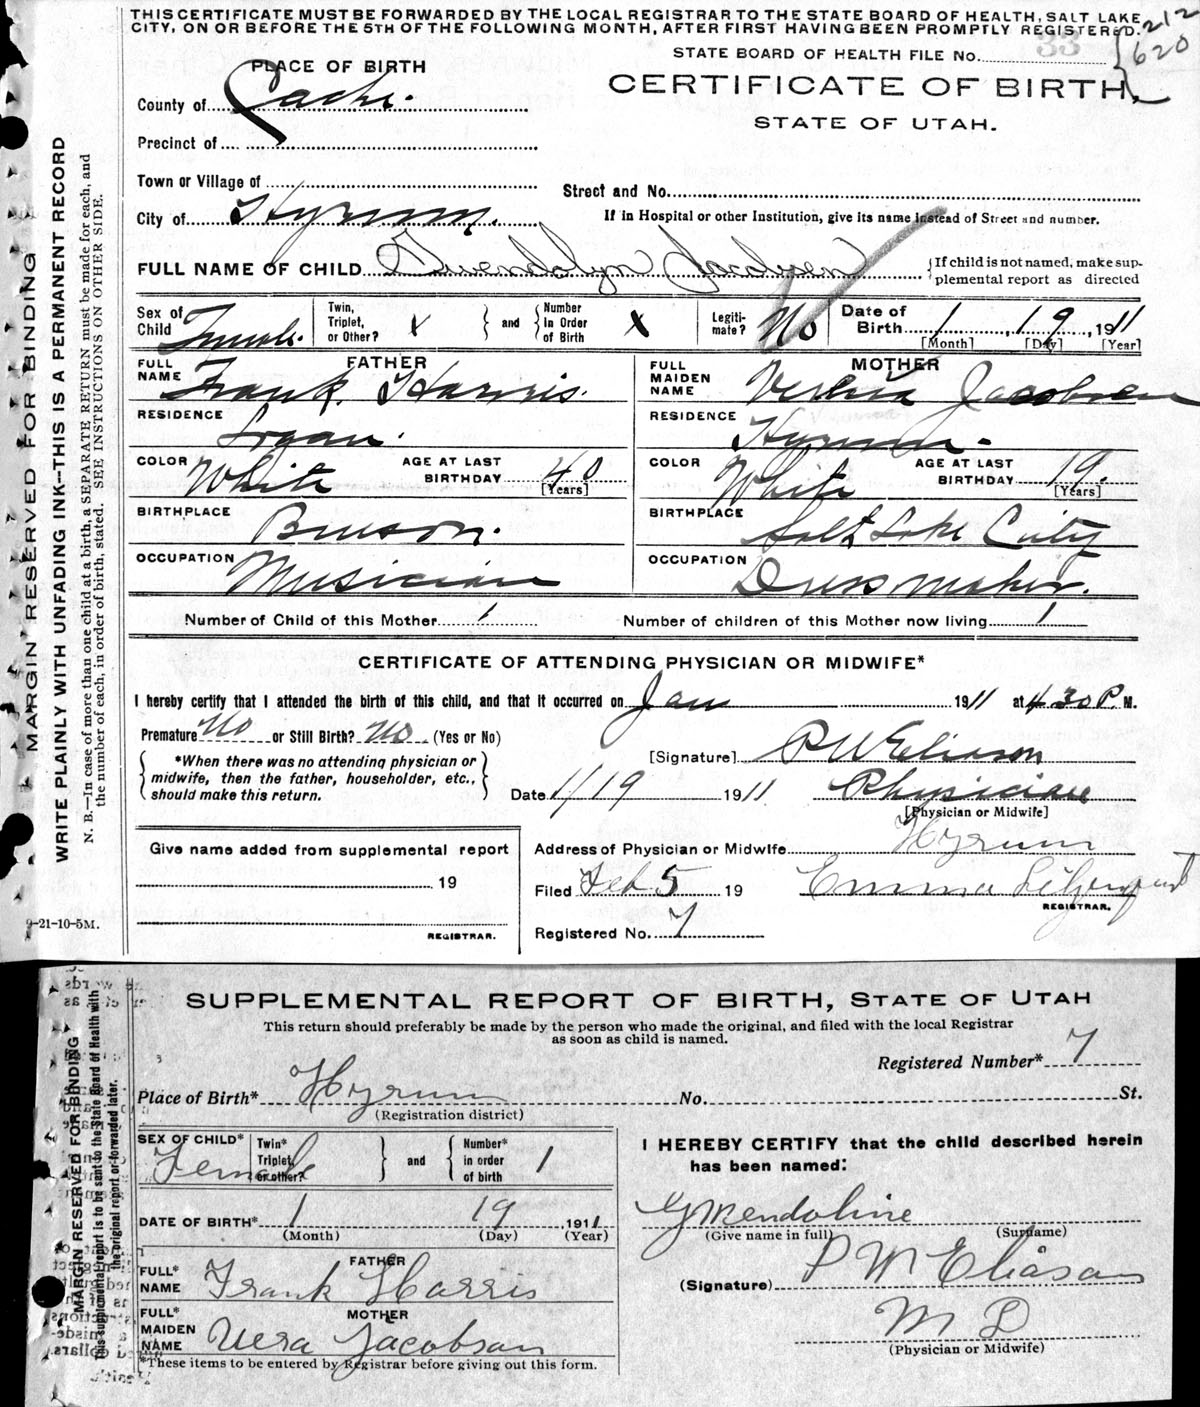 THIS CERTIFICATE MUST BE FORWARDED BY THE LOCAL REGISTRAR TO THE STATE BOARD OF HEALTH, SALT LAKE
CITY, ON OR BEFORE THE 5TH OF THE FOLLOWING MONTH, AFTER FIRST HAVING BEEN PROMPTLY REGISTERED.
212
620
STATE BOARD OF HEALTH FILE No. 33
PLACE OF BIRTH
CERTIFICATE OF BIRTH
County of Cache.
STATE OF UTAH.
Precinct of
Town or Village of
Street and No.
City of Hyrum.
If in Hospital or other Institution, give its name instead of Street and number.
FULL NAME OF CHILD Gwendolyn Jacobsen
If child is not named, make sup-
plemental report as directed
Sex of Child Female. Twin, Triplet, or Other? X and Number in Order of Birth X Legiti-mate? No Date of Birth 1, 19, 1911
[Month] [Day] [Year]
FATHER MOTHER
FULL NAME Frank Harris. FULL MAIDEN NAME Jacobsen
RESIDENCE Logan. RESIDENCE Hyrum.
COLOR White AGE AT LAST BIRTHDAY 40 [Years] COLOR White AGE AT LAST BIRTHDAY 19. [Years]
BIRTHPLACE Benson. BIRTHPLACE Salt Lake City
OCCUPATION Musician OCCUPATION Dressmaker.
Number of Child of this Mother 1 Number of children of this Mother now living 1
CERTIFICATE OF ATTENDING PHYSICIAN OR MIDWIFE*
I hereby certify that I attended the birth of this child, and that it occurred on Jan 1911 at 430 P. M.
Premature No or Still Birth? No (Yes or No)
[Signature] P W Eliason
*When there was no attending physician or
midwife, then the father, householder, etc.,
should make this return.
Date 1/19 1911 Physician
[Physician or Midwife]
Give name added from supplemental report
Address of Physician or Midwife Hyrum
19
Filed Feb 5 19 Emma
REGISTRAR.
REGISTRAR.
Registered No. 7
9-21-10-5M.
MARGIN RESERVED FOR BINDING
WRITE PLAINLY WITH UNFADING INK—THIS IS A PERMANENT RECORD
N. B.—In case of more than one child at a birth, a SEPARATE RETURN must be made for each, and
the number of each, in order of birth, stated. SEE INSTRUCTIONS ON OTHER SIDE.
SUPPLEMENTAL REPORT OF BIRTH, STATE OF UTAH
This return should preferably be made by the person who made the original, and filed with the local Registrar
as soon as child is named.
Registered Number* 7
Place of Birth* Hyrum No. St.
(Registration district)
SEX OF CHILD* Female Twin* Triplet or other? and Number* in order of birth 1
I HEREBY CERTIFY that the child described herein
has been named:
DATE OF BIRTH* 1 19 1911
(Month) (Day) (Year)
Gwendoline
(Give name in full) (Surname)
FATHER
FULL* NAME Frank Harris
(Signature) P W Eliason
MOTHER
FULL* MAIDEN NAME Vera Jacobsen
M D
(Physician or Midwife)
*These items to be entered by Registrar before giving out this form.
MARGIN RESERVED FOR BINDING
This supplemental report is to be sent to the State Board of Health with
the original report or forwarded later.